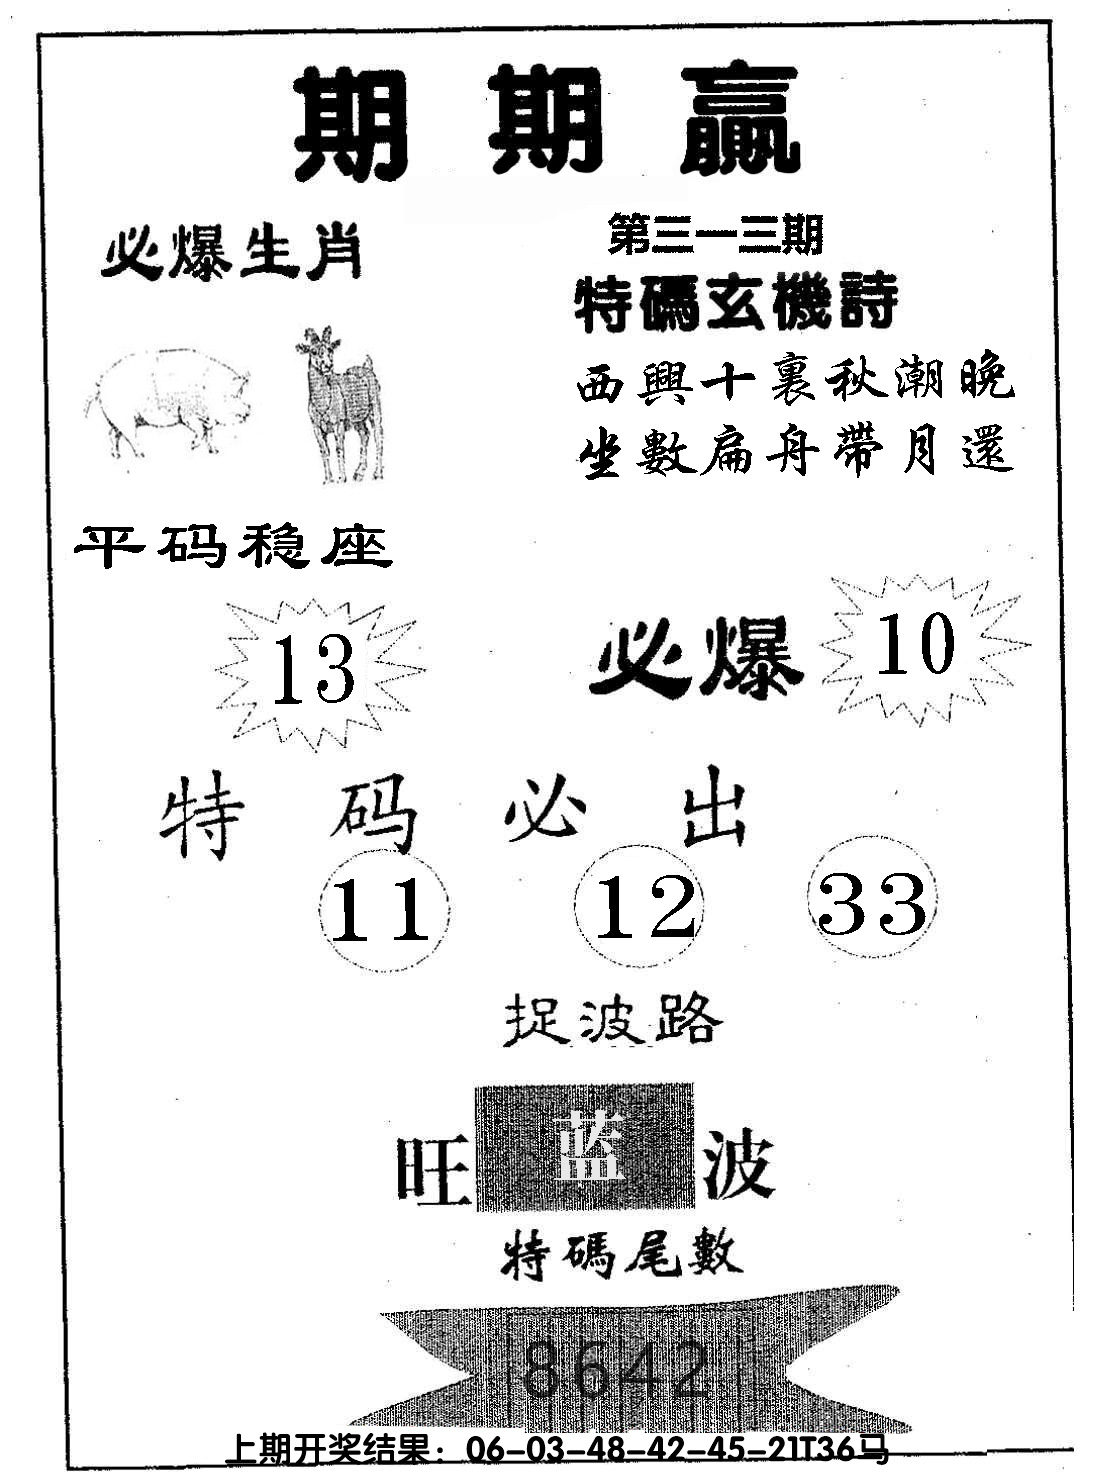 期期赢
必爆生肖
第三一三期
特碼玄機詩
西興十裏秋潮晚
坐數扁舟帶月還
平码稳座
13
必爆 10
特码必出
11 12 33
捉波路
旺 蓝 波
特碼尾數
8642
上期开奖结果：06-03-48-42-45-21T36马